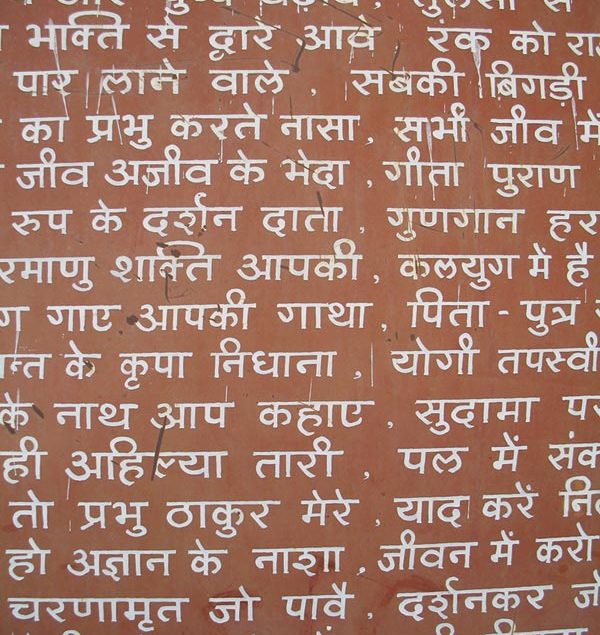 भक्ति से द्वारे आव रंक को
पार लाने वाले , सबकी बिगड़ी
का प्रभु करते नासा , सभी जीव में
जीव अजीव के भेदा , गीता पुराण
रुप के दर्शन दाता , गुणगान
रमाणु शक्ति आपकी , कलयुग में है
गाए आपकी गाथा , पिता - पुत्र
के कृपा निधाना , योगी तपस्वी
के नाथ आप कहाए , सुदामा
ही अहिल्या तारी , पल में
तो प्रभु ठाकुर मेरे , याद करें
हो अज्ञान के नाशा , जीवन में करो
चरणामृत जो पावै , दर्शनकर जो